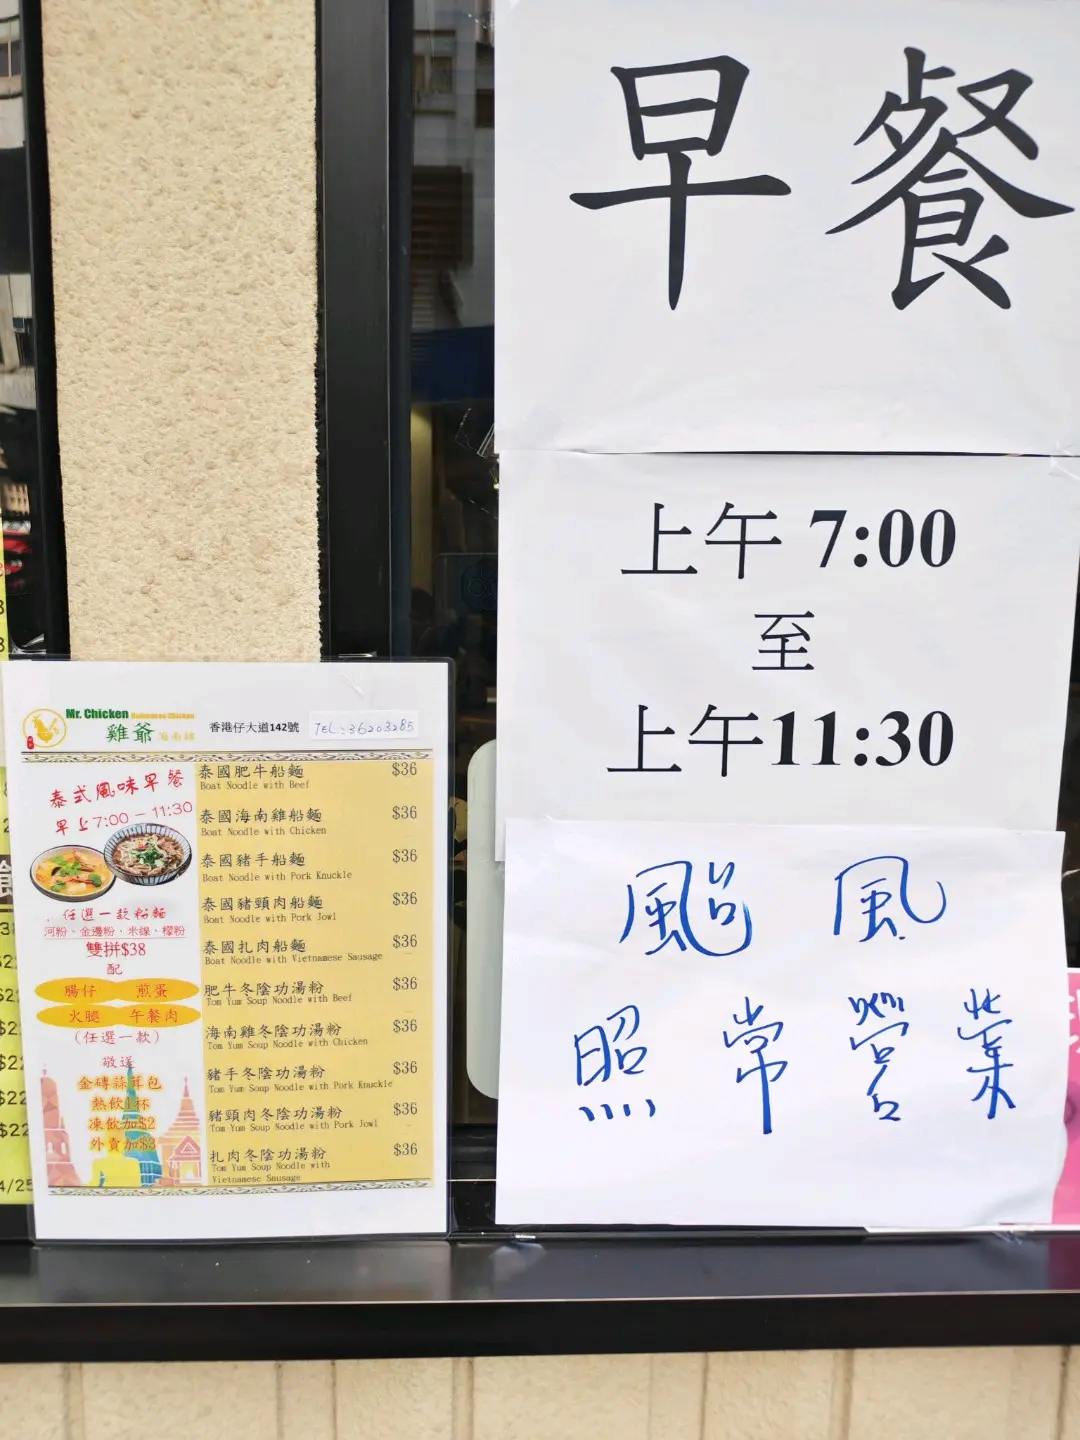 早餐
上午 7:00
至
上午11:30
颱風
照常營業
Mr. Chicken Hainanese Chicken
雞爺 海南雞
香港仔大道142號
TEL:36203285
泰式風味早餐
早上7:00-11:30
任選一款船麵
河粉、金邊粉、米線、檬粉
雙拼$38
配
腸仔 煎蛋
火腿 午餐肉
(任選一款)
敬送
金磚蒜茸包
熱飲1杯
凍飲加$2
外賣加$3
泰國肥牛船麵 $36
Boat Noodle with Beef
泰國海南雞船麵 $36
Boat Noodle with Chicken
泰國豬手船麵 $36
Boat Noodle with Pork Knuckle
泰國豬頸肉船麵 $36
Boat Noodle with Pork Jowl
泰國扎肉船麵 $36
Boat Noodle with Vietnamese Sausage
肥牛冬陰功湯粉 $36
Tom Yum Soup Noodle with Beef
海南雞冬陰功湯粉 $36
Tom Yum Soup Noodle with Chicken
豬手冬陰功湯粉 $36
Tom Yum Soup Noodle with Pork Knuckle
豬頸肉冬陰功湯粉 $36
Tom Yum Soup Noodle with Pork Jowl
扎肉冬陰功湯粉 $36
Tom Yum Soup Noodle with
Vietnamese Smusage